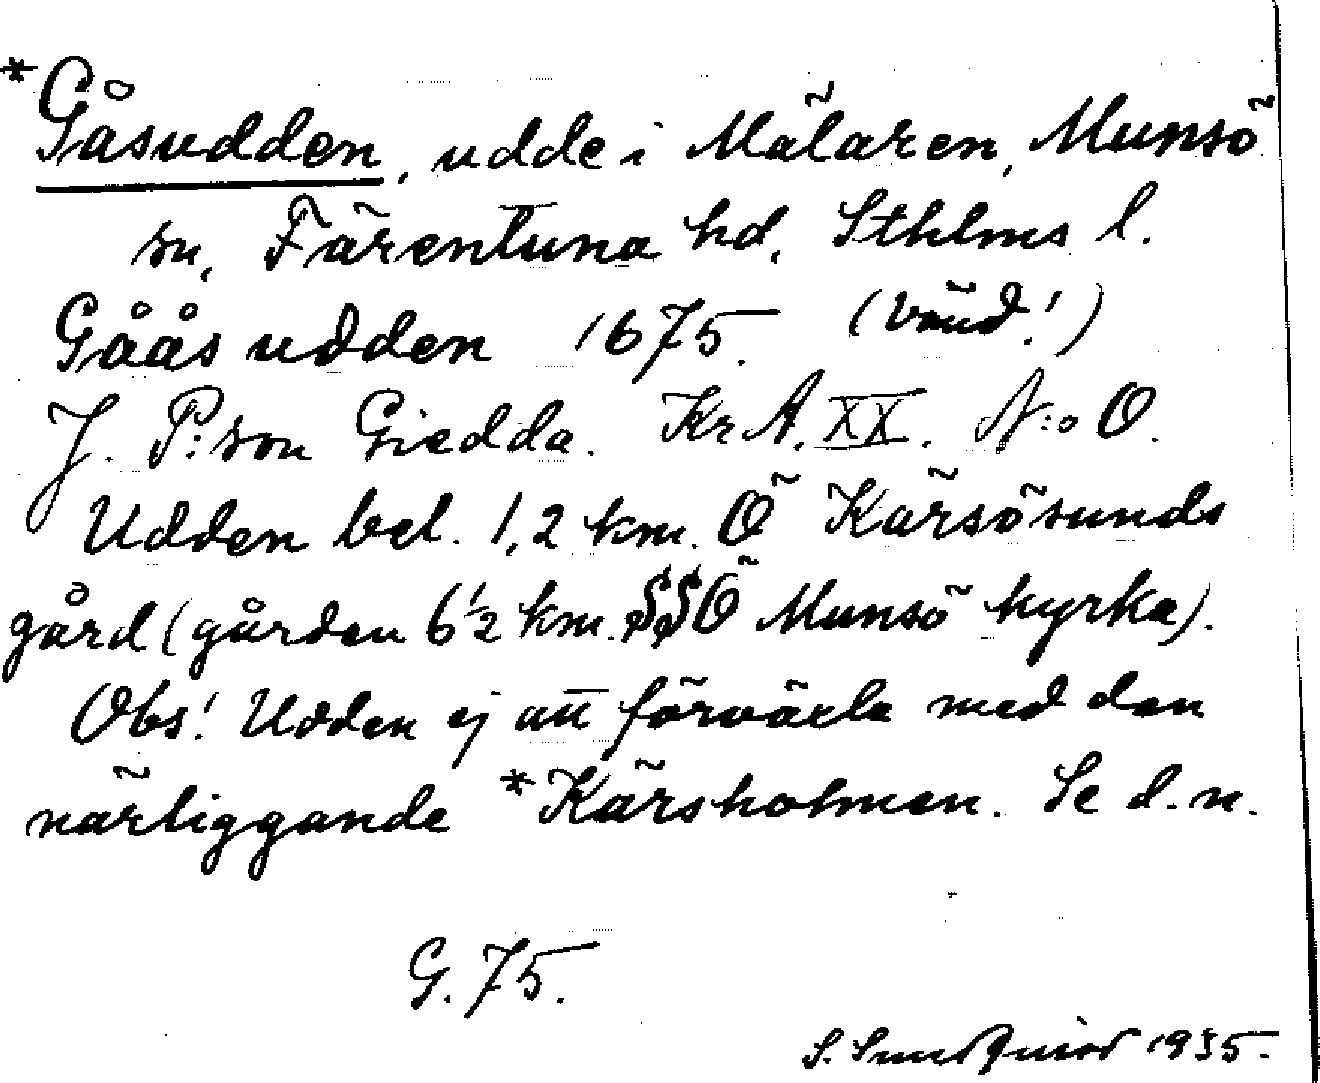 *Gåsudden, udde i Mälaren, Munsö
sn, Färentuna hd, Sthlms l.
Gåås udden 1675. (vänd!)
J. P:son Giedda. KrA. XX. N:o O.
Udden bel. 1,2 km. Ö Kärsösunds
gård (gården 6½ km. SSÖ Munsö kyrka).
Obs! Udden ej att förväxla med den
närliggande *Kärsholmen. Se d.n.
G. 75.
S. Sundquist 1935.